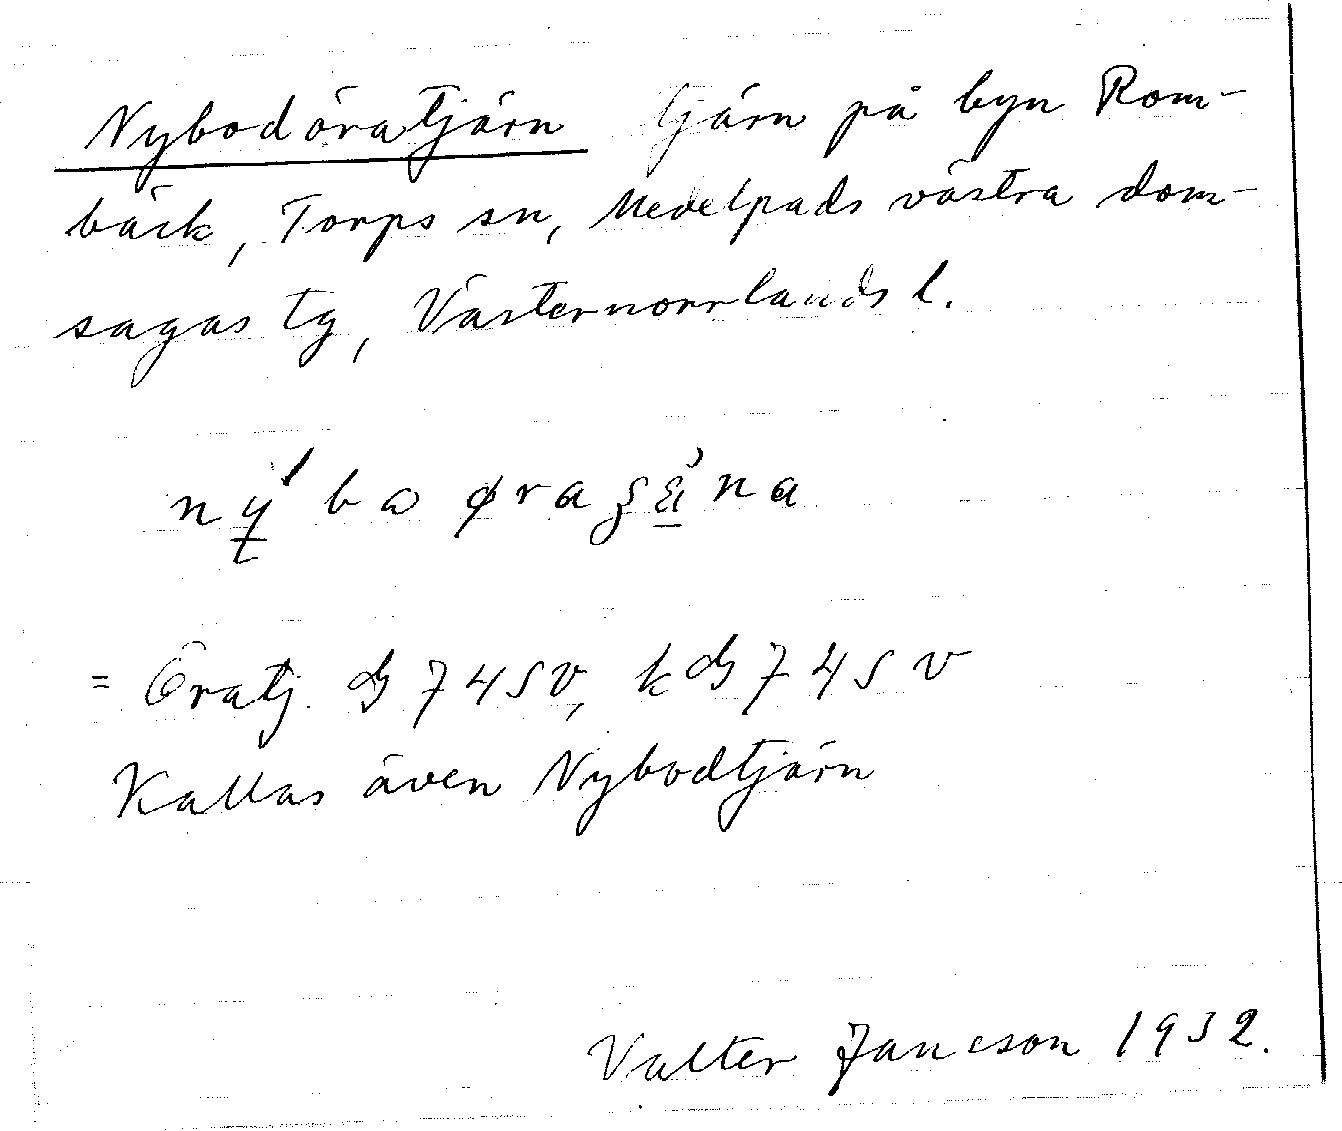 Nybodöratjärn tjärn på byn Rom-
bäck, Torps sn, Medelpads västra dom-
sagas tg, Västernorrlands l.
ný̱ba øraʂǽna
= Öratj. 745v, k 745v
Kallas även Nybodtjärn
Valter Janeson 1932.